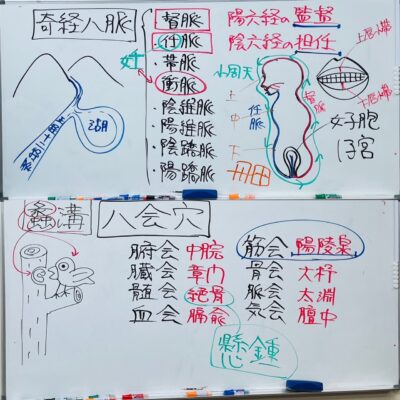 奇経八脈
督脈
任脈
帯脈
衝脈
陰維脈
陽維脈
陰蹻脈
陽蹻脈
妊
陽六経の監督
陰六経の担任
小周天
上
中
下
丹田
任脈
督脈
上唇小帯
下唇小帯
女子胞
子宮
正経十二経脈
蠡溝
八会穴
腑会 中脘
臓会 章門
髄会 絶骨
血会 膈兪
筋会 陽陵泉
骨会 大杼
脈会 太淵
気会 膻中
懸鍾